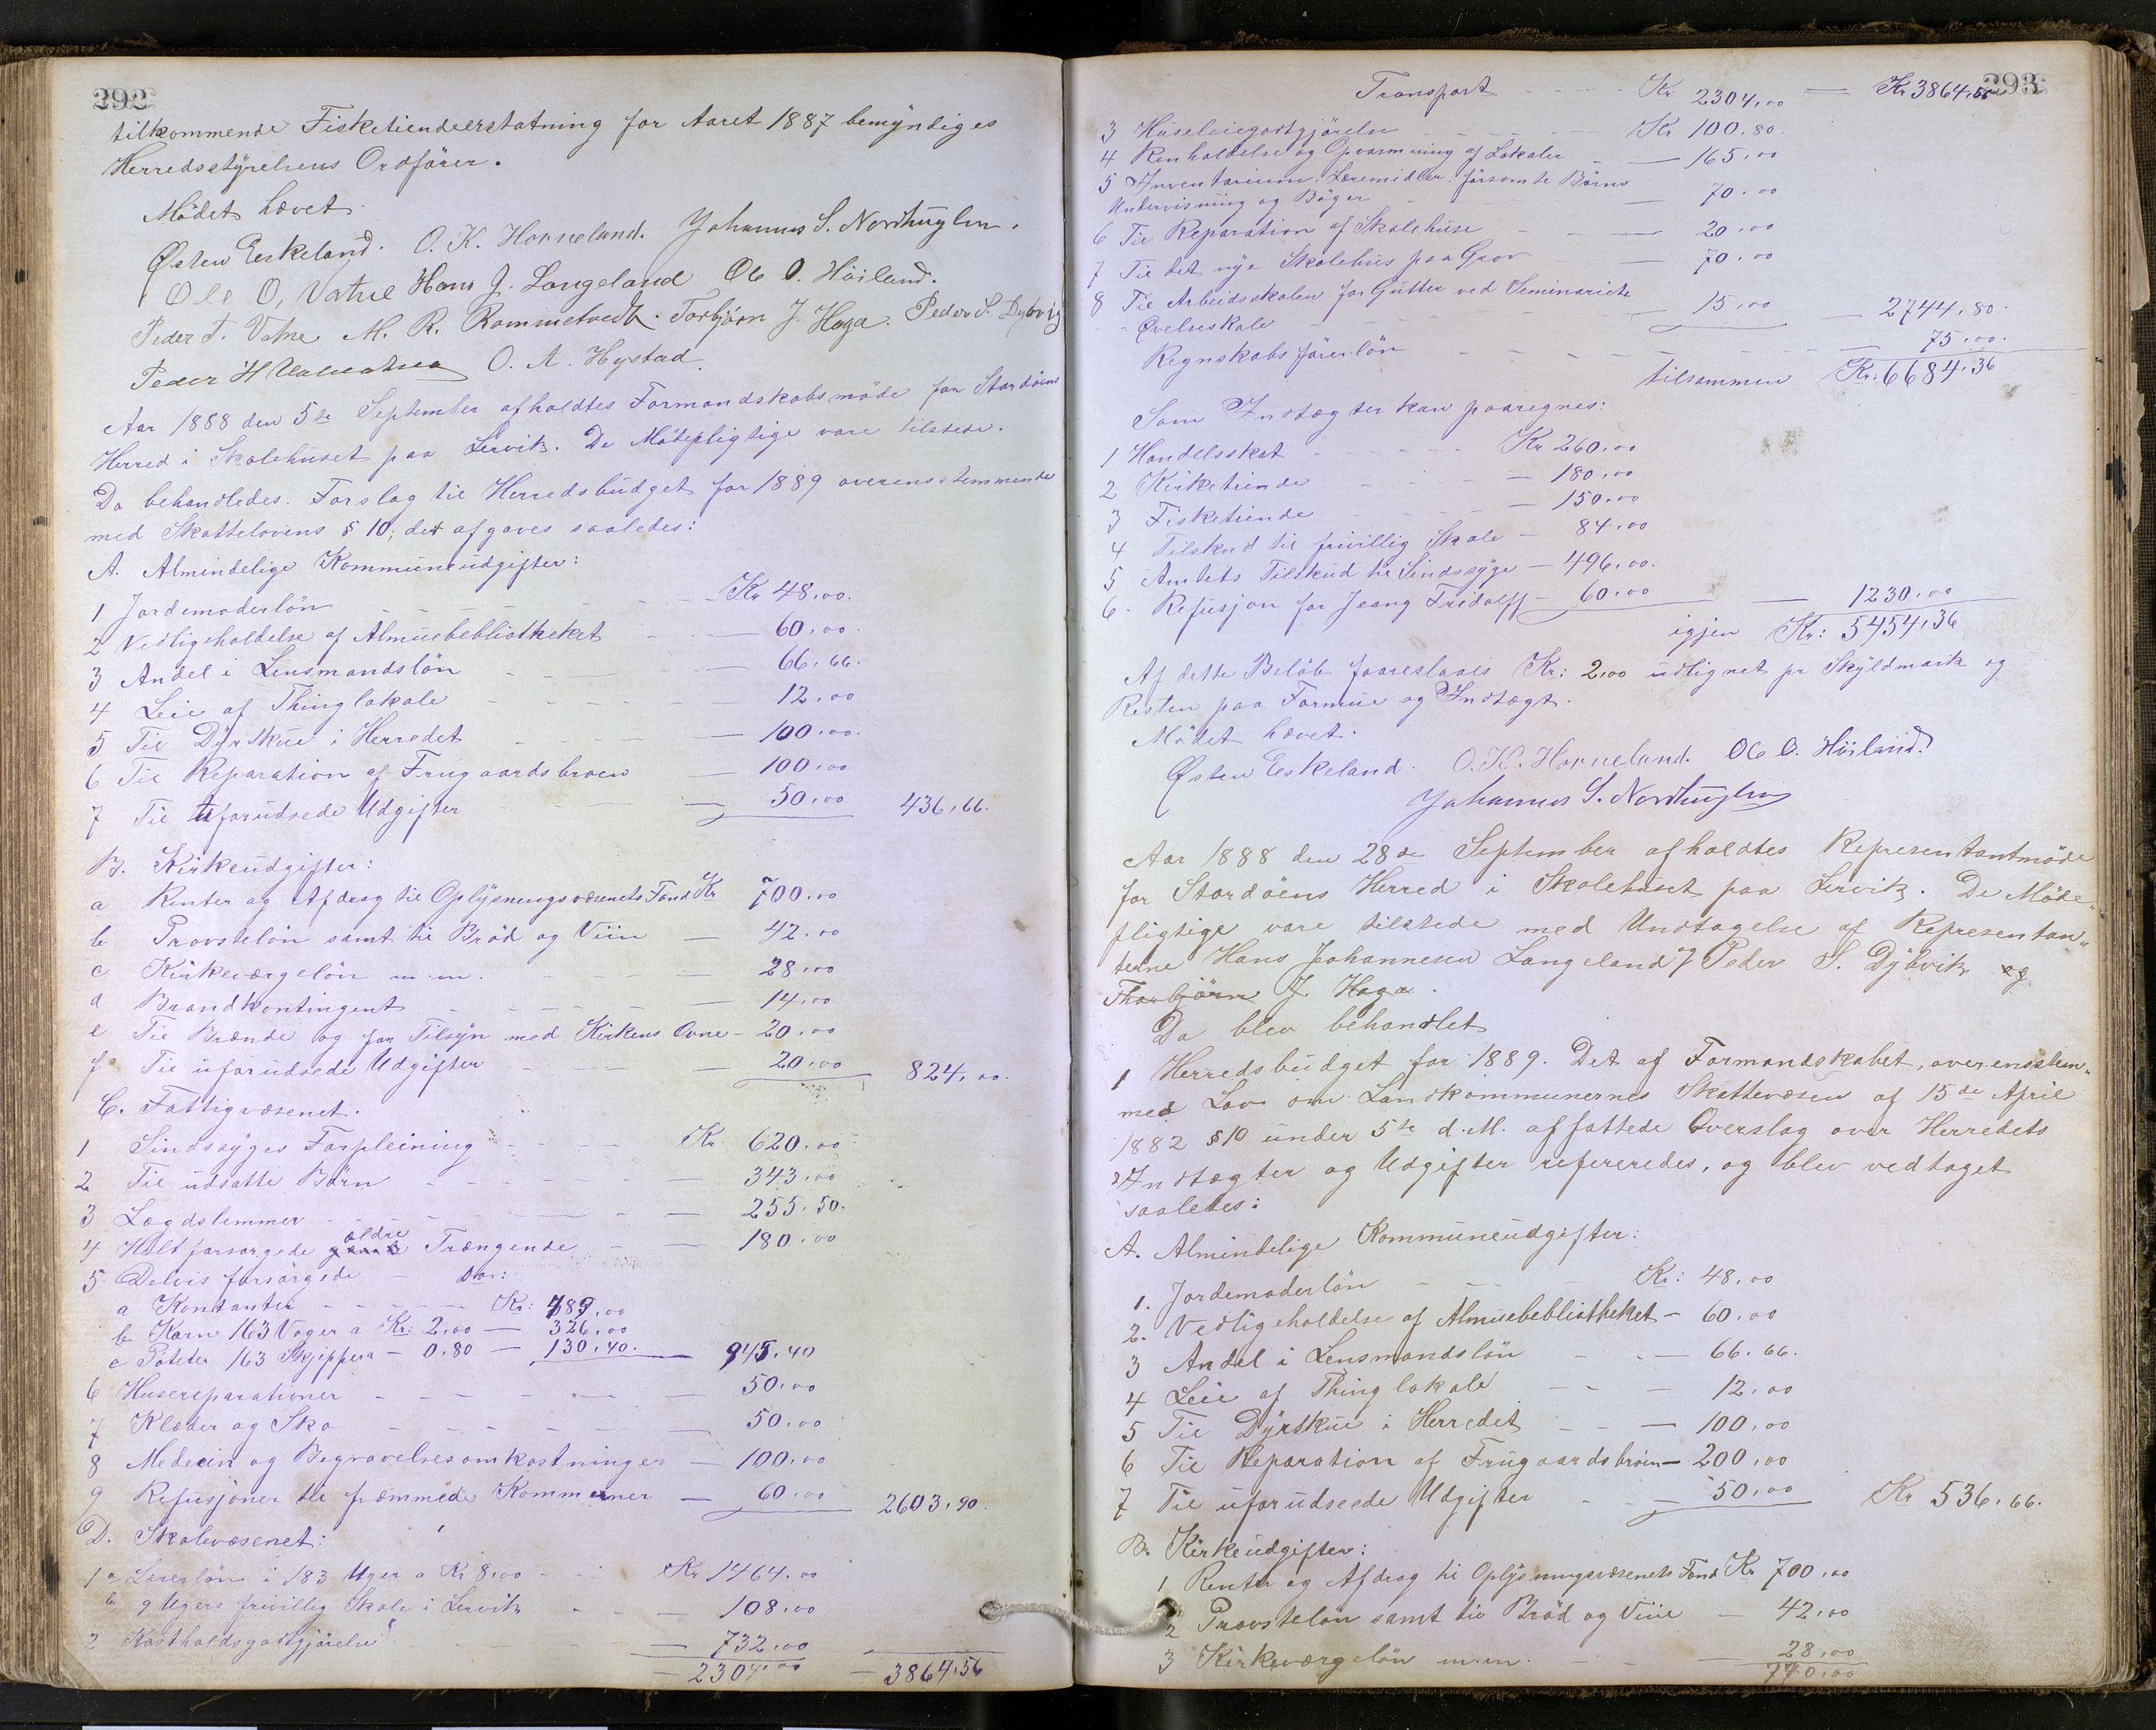 292
tilkommende Fisketiendeerstatning for Aaret 1887 bemyndiges
Herredsstyrelsens Ordförer.
Mödet hævet
Østen Eskeland. O. K. Horneland. Johannes S. Nordhuglen.
Ole O. Vatne Hans J. Langeland Ole O. Höiland.
Peder T. Vatne M. R. Rommetvedt. Torbjörn J. Haga. Peder S. Dybvig
Peder H O. A. Hystad.
Aar 1888 den 5te September afholdtes Formandskabsmöde for Stordöens
Herred i Skolehuset paa Lervik. De Mödepligtige vare tilstede.
Da behandledes. Forslag til Herredsbudget for 1889 overensstemmende
med Skattelovens § 10; det afgaves saaledes:
A. Almindelige Kommuneudgifter:
1 Jordemoderlön Kr 48,00.
2 Vedligeholdelse af Almuebebliotheket — 60,00.
3 Andel i Lensmandslön — 66,66.
4 Leie af Thinglokale — 12,00
5 Til Dyrskue i Herredet — 100,00.
6 Til Reparation af Frugaardsbroen — 100,00
7 Til uforudsede Udgifter — 50,00 436,66.
B. Kirkeudgifter:
a Renter og Afdrag til Oplysningsvæsenets Fond Kr 700,00
b Provstelön samt til Bröd og Viin — 42,00
c Kirkeværgelön m.m. — 28,00
d Brandkontingent — 14,00
e Til Brænde og for Tilsyn med Kirkens Ovne — 20,00
f Til uforudsede Udgifter — 20,00 824,00.
C. Fattigvæsenet.
1 Sindssyges Forpleining Kr 620,00
2 Til udsatte Börn — 343,00
3 Lægdslemmer — 255,50.
4 Helt forsörgede ældre Trængende — 180,00
5 Delvis forsörgede do:
a Kontanter Kr: 489,00
b Korn 163 Voger a Kr: 2,00 — 326,00
c Poteter 163 Skjippera — 0,80 — 130,40. 945,40
6 Husereparationer — 50,00
7 Klæder og Sko — 50,00
8 Medecin og Begravelsesomkostninger — 100,00
9 Refusjoner til fræmmede Kommuner — 60,00 2603,90.
D. Skolevæsenet:
1 a Lærerlön i 183 Uger a Kr 8,00 Kr 1464,00
b 9 Ugers frivillig Skole i Lervik — 108,00
2 Kostholdsgodtgjörelse — 732,00
— 2304,00 — 3864,56
293
Transport Kr. 2304,00 — Kr 3864,56
3 Huseleiegodtgjörelse Kr 100,80.
4 Renholdelse og Opvarmning af Lokaler — 165,00
5 Inventarium. Læremidler. forsömte Börns
Undervisning og Böger — 70,00
6 Til Reparation af Skolehuse — 20,00
7 Til det nye Skolehus paa Grov — 70,00
8 Til Arbeidsskolen for Gutter ved Seminariets
Övelseskole — 15,00 — 2744,80.
Regnskabsförerlön — 75,00.
tilsammen Kr: 6684,36
Som Indtægter kan paaregnes:
1 Handelsskat Kr 260,00
2 Kirketiende — 180,00
3 Fisketiende — 150,00
4 Tilskud til frivillig Skole — 84,00
5 Amtets Tilskud til Sindssyge — 496,00.
6. Refusjon for Jeang Fridolff — 60,00 — 1230,00
igjen Kr: 5454,36
Af dette Belöb foareslaaes Kr: 2,00 udlignet pr Skyldmark og
Resten paa Formue og Indtægt.
Mödet hævet.
Østen Eskeland. O. K. Horneland. Ole O. Höiland.
Johannes S. Nordhuglen
Aar 1888 den 28de September afholdtes Representantmöde
for Stordöens Herred i Skolehuset paa Lervik. De Möde„
pligtige vare tilstede med Undtagelse af Representan„
terne Hans Johannesen Langeland og Peder S. Dybvik og
Thorbjörn J. Haga.
Da blev behandlet
1 Herredsbudget for 1889. Det af Formandskabet, overensstem„
med Lov om Landkommunernes Skattevæsen af 15de April
1882 § 10 under 5te d.M. affattede Overslag over Herredets
Indtægter og Udgifter refereredes, og blev vedtaget
saaledes:
A. Almindelige Kommuneudgifter:
1. Jordemoderlön Kr: 48,00
2. Vedligeholdelse af Almuebebliotheket — 60,00
3 Andel i Lensmandslön — 66,66.
4 Leie af Thinglokale — 12,00
5 Til Dyrskue i Herredet — 100,00
6 Til Reparation af Frugaardsbroen — 200,00
7 Til uforudseede Udgifter — 50,00 Kr 536,66.
B. Kirkeudgifter:
1 Renter og Afdrag til Oplysningsvæsenets Fond Kr 700,00
2 Provstelön samt til Bröd og Viin — 42,00
3 Kirkeværgelön m.m. — 28,00
770,00